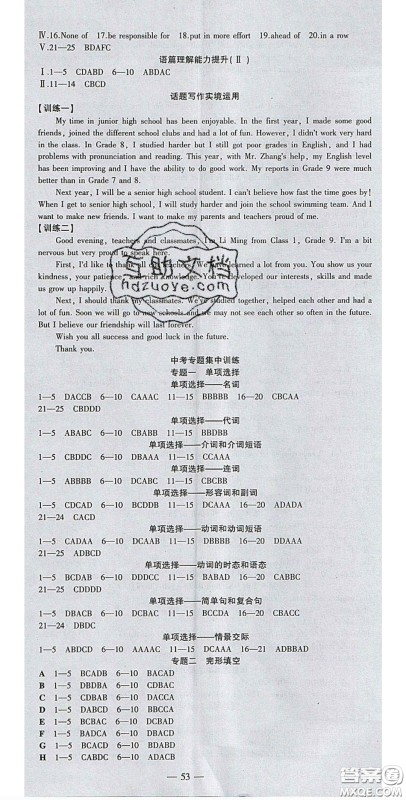 Ⅳ.16.None of  17.be responsible for  18.put in more effort  19.ahead of  20.in a row
Ⅴ.21—25  BDAFC
语篇理解能力提升(Ⅱ)
Ⅰ.1—5  CDABD  6—10  ABDAC
Ⅱ.11—14  CBCD
话题写作实境运用
【训练一】
My time in junior high school has been enjoyable. In the first year, I made some good
friends, joined the different school clubs and had lots of fun. However, I didn't work very hard
in the class. In Grade 8, I studied harder but I still got poor grades in English, and I had
problems with pronunciation and reading. This year, with Mr. Zhang's help, my English level
has been improving and I have the ability to do good work. My reports in Grade 9 were much
better than in Grade 7 and 8.
Next year, I will be a senior high school student. I can't believe how fast the time goes by!
When I'm in senior high school, I will study harder and join the school swimming team. And I
want to make new friends. I want to make my parents and teachers proud of me.
【训练二】
Good evening, teachers and classmates, I'm Li Ming from Class 1, Grade 9. I'm a bit
nervous but very proud to speak here.
First, I'd like to thank all We've learned a lot from you. You show us your
kindness, your patience and rich knowledge. You've developed our interests, skills and made
us grow up happily.
Next, I should thank my classmates. We've studied together, helped each other and had a
lot of fun. Soon we will go to new schools and we may not see each other so often in the future.
But I believe our friendship will last forever.
Wish you all success and good luck in the future.
Thank you.
中考专题集中训练
专题一  单项选择
单项选择——名词
1—5  DACCB  6—10  CAAAC  11—15  BBBBB  16—20  CBCAA
21—25  CBDDD
单项选择——代词
1—5  ABABC  6—10  CBABB  11—15  DBDBB
单项选择——介词和介词短语
1—5  CBCDC  6—10  DBAAA  11—15  CCAAA
单项选择——连词
1—5  ABBAC  6—10  DCABB  11—15  ACDAB
单项选择——形容词和副词
1—5  CDCAD  6—10  BDCBC  11—15  DCCAB  16—20  ADADA
21—24  CACD
单项选择——动词和动词短语
1—5  CADAA  6—10  DCAAB  11—15  DAABC  16—20  DDABA
21—25  ADBCD
单项选择——动词的时态和语态
1—5  ABCBA  6—10  DDDCC  11—15  BABAD  16—20  CABAD
单项选择——简单句和复合句
1—5  BCDAC  6—10  BBACA  11—15  DCBAD  16—20  DDACC
21—24  DBDC
单项选择——情景交际
1—5  BDACC  6—10  DCBAC  11—15  DCAAA  16—21  ADBBAC
专题二  完形填空
A  1—5  BCADB  6—10  BACAD
B  1—5  DBDBA  6—10  CDBAC
C  1—5  CDBAD  6—10  DACCA
D  1—5  DABCD  6—10  BBCCA
E  1—5  BCBAC  6—10  DCDBD
F  1—5  BADCA  6—10  DBACD
G  1—5  BCADB  6—10  ACBAD
H  1—5  BACAC  6—10  DCABB
— 53 —